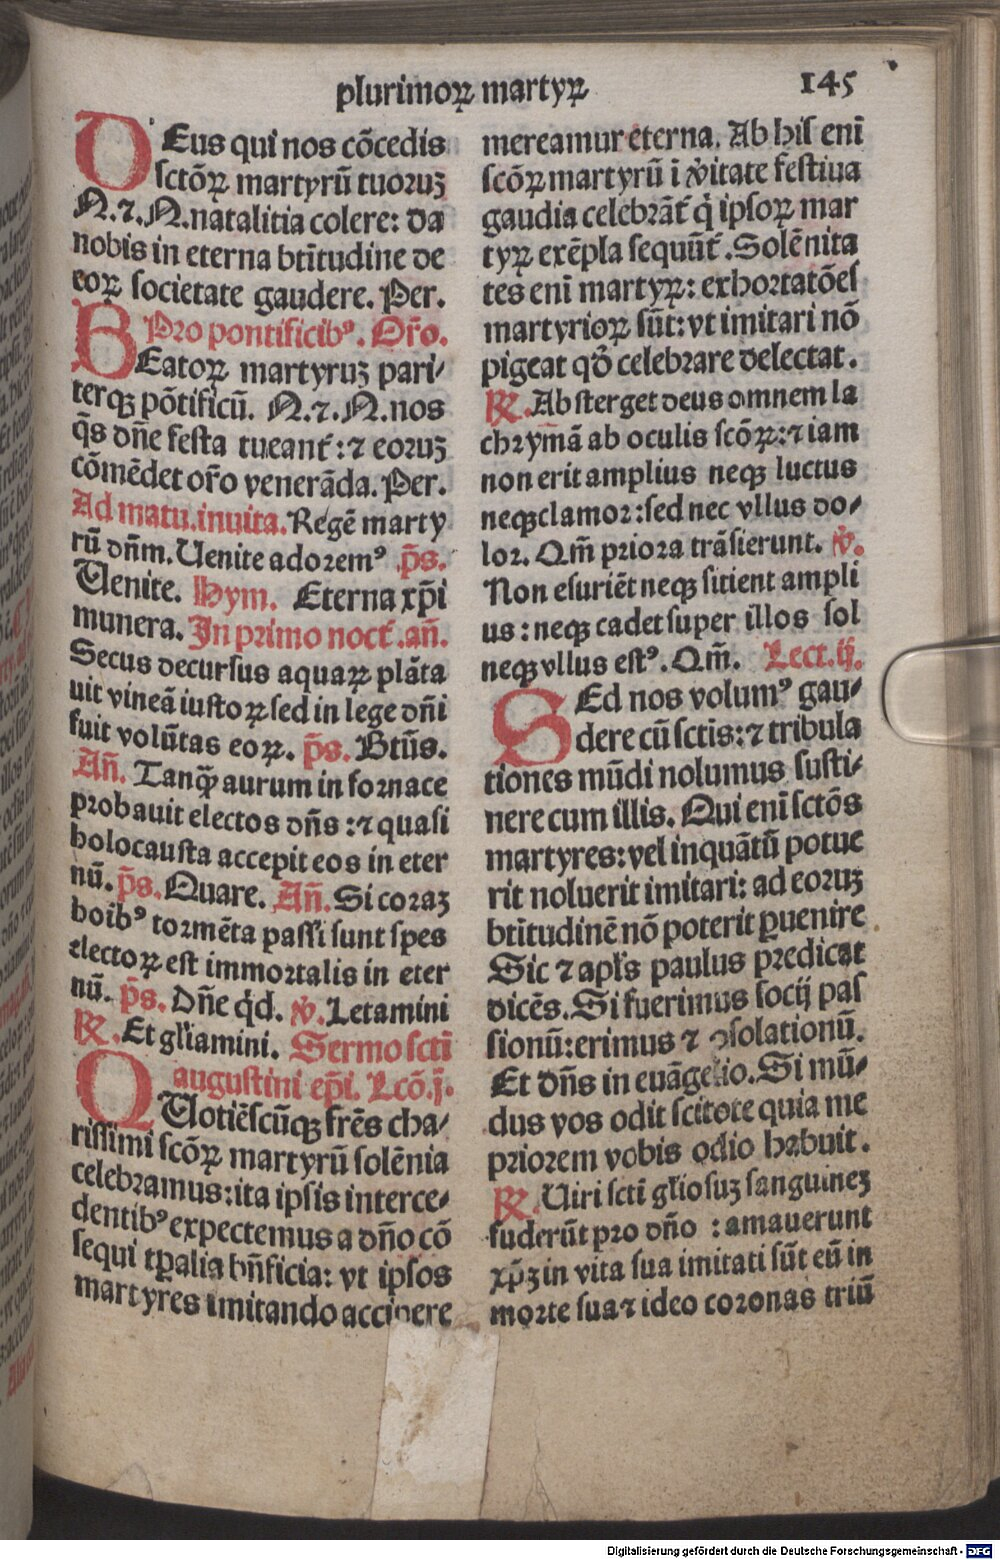 plurimoꝝ martyꝝ 145
DEus qui nos cōcedis
sctōꝝ martyrū tuoruꝫ
N.⁊.N.natalitia colere: da
nobis in eterna btītudine de
eoꝝ societate gaudere. Per.
Pro pontificibꝰ. Or̄o.
BEatoꝝ martyruꝫ pari⸗
terqꝫ pōtificū. N.⁊.N.nos
q̄s dn̄e festa tueant᷑:⁊ eoruꝫ
cōmēdet or̄o venerāda. Per.
Ad matu.inuita. Regē marty
rū dn̄m. Uenite adoremꝰ p̄s.
Uenite. Hym. Eterna xp̄i
munera. In primo noct᷑.an̄.
Secus decursus aquaꝝ plāta
uit vineā iustoꝝ sed in lege dn̄i
fuit volūtas eoꝝ. p̄s. Btūs.
An̄. Tanqᷓ aurum in fornace
probauit electos dn̄s :⁊ quasi
holocausta accepit eos in eter
nū. p̄s. Quare. An̄. Si coraꝫ
hoibꝰ tormēta passi sunt spes
electoꝝ est immortalis in eter
nū. p̄s. Dn̄e q̇d. ℣. Letamini
℟. Et gl̄iamini. Sermo scti
augustini ep̄i. Lcō.j.
QUotiēscūqꝫ fr̄es cha⸗
rissimi scōꝝ martyrū solēnia
celebramus:ita ipsis interce⸗
dentibꝰ expectemus a dn̄o cō
sequi tꝑalia bn̄ficia: vt ipsos
martyres imitando accipere
mereamur eterna. Ab hiſ enī
scōꝝ martyrū ī v̇itate festiua
gaudia celebrāt᷑ q̇ ipsoꝝ mar
tyꝝ exēpla sequūt᷑. Solēnita
tes eni martyꝝ: exhortatōeſ
martyrioꝝ sūt: vt imitari nō
pigeat qd̄ celebrare delectat.
℟. Absterget deus omnem la
chrymā ab oculis scōꝝ:⁊ iam
non erit amplius neqꝫ luctus
neqꝫ clamor: sed nec vllus do⸗
lor. Qm̄ priora trāsierunt. ℣.
Non esuriēt neqꝫ sitient ampli
us: neqꝫ cadet super illos sol
neqꝫ vllus estꝰ. Qm̄. Lect.ij.
SEd nos volumꝰ gau⸗
dere cū sctis:⁊ tribula
tiones mūdi nolumus susti⸗
nere cum illis. Qui enī sctōs
martyres: vel inquātū potue
rit noluerit imitari: ad eoruꝫ
btītudinē nō poterit ꝑuenire
Sic ⁊ apl̄s paulus predicat
dicēs. Si fuerimus socij paſ
sionū: erimus ⁊ ꝯsolationū.
Et dn̄s in euāgelio. Si mū⸗
dus vos odit scitote quia me
priorem vobis odio habuit.
℟. Uiri scti gl̄iosuꝫ sanguineꝫ
fuderūt pro dn̄o : amauerunt
xp̄ꝫ in vita sua imitati sūt eū in
morte sua ⁊ ideo coronas triū
Digitalisierung gefördert durch die Deutsche Forschungsgemeinschaft - DFG